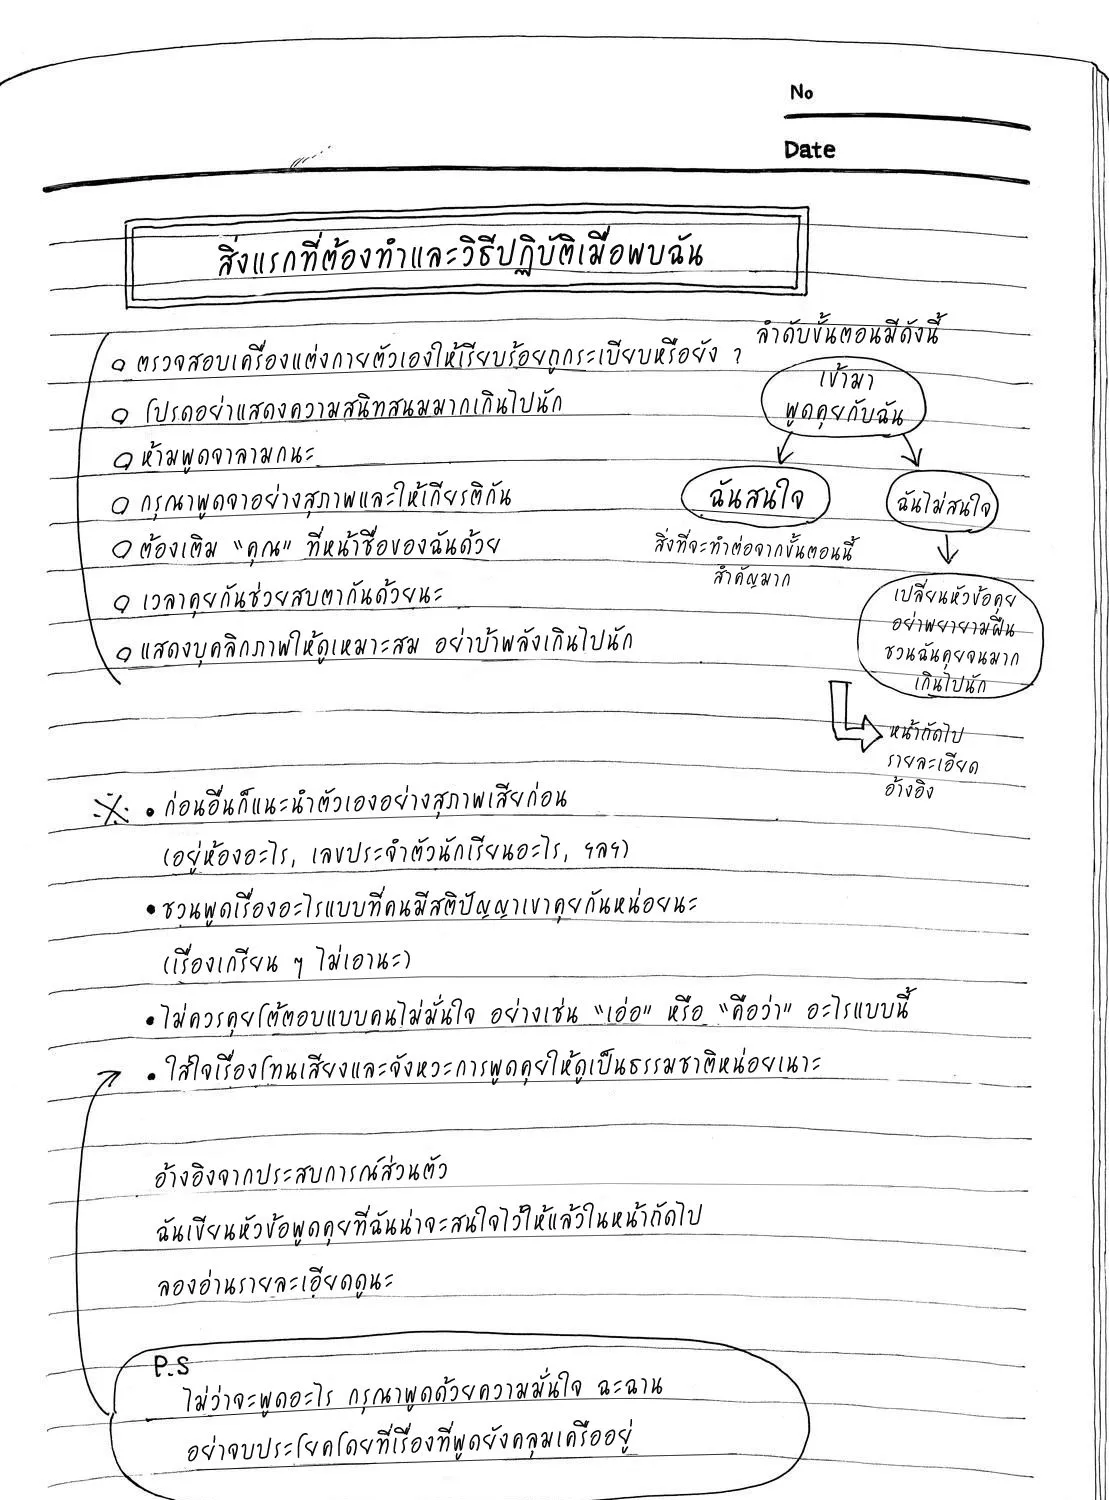 No
Date
สิ่งแรกที่ต้องทำและวิธีปฏิบัติเมื่อพบฉัน
ตรวจสอบเครื่องแต่งกายตัวเองให้เรียบร้อยถูกระเบียบหรือยัง ?
โปรดอย่าแสดงความสนิทสนมมากเกินไปนัก
ห้ามพูดจาลามกนะ
กรุณาพูดจาอย่างสุภาพและให้เกียรติกัน
ต้องเติม "คุณ" ที่หน้าชื่อของฉันด้วย
เวลาคุยกันช่วยสบตากันด้วยนะ
แสดงบุคลิกภาพให้ดูเหมาะสม อย่าบ้าพลังเกินไปนัก
ลำดับขั้นตอนมีดังนี้
เข้ามา
พูดคุยกับฉัน
ฉันสนใจ
ฉันไม่สนใจ
สิ่งที่จะทำต่อจากขั้นตอนนี้
สำคัญมาก
เปลี่ยนหัวข้อคุย
อย่าพยายามฝืน
ชวนฉันคุยจนมาก
เกินไปนัก
หน้าถัดไป
รายละเอียด
อ้างอิง
※ • ก่อนอื่นก็แนะนำตัวเองอย่างสุภาพเสียก่อน
(อยู่ห้องอะไร, เลขประจำตัวนักเรียนอะไร, ฯลฯ)
• ชวนพูดเรื่องอะไรแบบที่คนมีสติปัญญาเขาคุยกันหน่อยนะ
(เรื่องเกรียน ๆ ไม่เอานะ)
• ไม่ควรคุยโต้ตอบแบบคนไม่มั่นใจ อย่างเช่น "เอ่อ" หรือ "คือว่า" อะไรแบบนี้
• ใส่ใจเรื่องโทนเสียงและจังหวะการพูดคุยให้ดูเป็นธรรมชาติหน่อยเนาะ
อ้างอิงจากประสบการณ์ส่วนตัว
ฉันเขียนหัวข้อพูดคุยที่ฉันน่าจะสนใจไว้ให้แล้วในหน้าถัดไป
ลองอ่านรายละเอียดดูนะ
P.S
ไม่ว่าจะพูดอะไร กรุณาพูดด้วยความมั่นใจ ฉะฉาน
อย่าจบประโยคโดยที่เรื่องที่พูดยังคลุมเครืออยู่